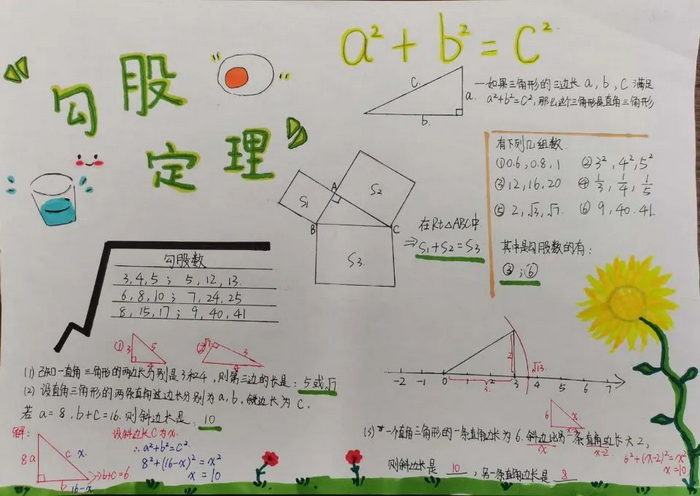 勾股
定理
a²+b²=c²
c.
a.
b.
一如果三角形的三边长a,b,c满足
a²+b²=c²,那么这个三角形是直角三角形
S₁
S₂
A
B
C
S₃
在Rt△ABC中
⇒S₁+S₂=S₃
有下列几组数
①0.6,0.8,1 ②3²,4²,5²
③12,16,20 ④1/3,1/4,1/5
⑤2,√3,√7 ⑥9,40.41.
其中是勾股数的有:
③;⑥
勾股数
3,4,5; 5,12,13.
6,8,10; 7,24,25
8,15,17; 9,40,41
① 3 5
② 3
(1)已知一直角三角形的两边长分别是3和4,则第三边的长是:5或√7
(2)设直角三角形的两条直角边边长分别为a,b,斜边长为c.
若a=8.b+c=16.则斜边长是 10
解:
设斜边长C为x.
∴a²+b²=c².
8²+(16-x)²=x²
x=10
8 a
x.
b 16-x
-2 -1 0 1 2 3 4 5 6 7
2
3.
√13
6
x
x-2
(3)一个直角三角形的一条直角边长为6.斜边比另一条直角边长大2,
x x-2
6²+(x-2)²=x²
x=10
则斜边长是 10 ,另一条直角边长是 8